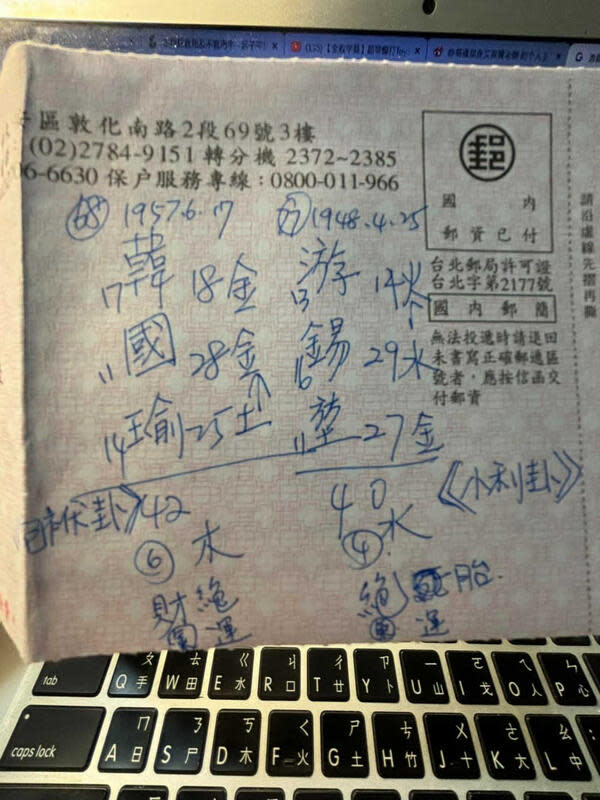 區敦化南路2段69號3樓
(02)2784-9151 轉分機 2372~2385
06-6630 保户服務專線：0800-011-966
郵
國 內
郵資已付
台北郵局許可證
台北字第2177號
國內郵簡
無法投遞時請退回
未書寫正確郵遞區
號者，應按信函交
付郵資
請沿虛線先摺再撕
68 1957.6.17
韓 17 18金
國 11 28金
瑜 14 25土
42
6 木
財 絕
運
1948.4.25
游 13
錫 16 29水
堃 11 27金
40
4 水
《小利卦》
絕 胎
運
tab
Q 手
W 田
E 水
R 口
T 廿
Y 卜
U 山
I 戈
O 人
P 心
caps lock
A 日
S 尸
D 木
F 火
G 土
H 竹
J 十
K 大
L 中